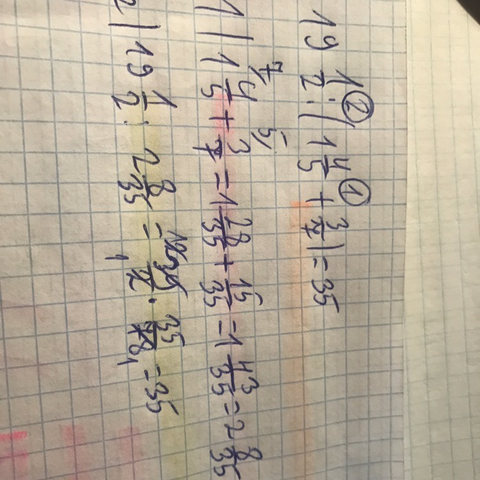 19 1/2 : (1 4/5 + 3/7) = 35
1) 1 4/5 + 3/7 = 1 28/35 + 15/35 = 1 43/35 = 2 8/35
2) 19 1/2 : 2 8/35 = /2 · 35/78 = 35